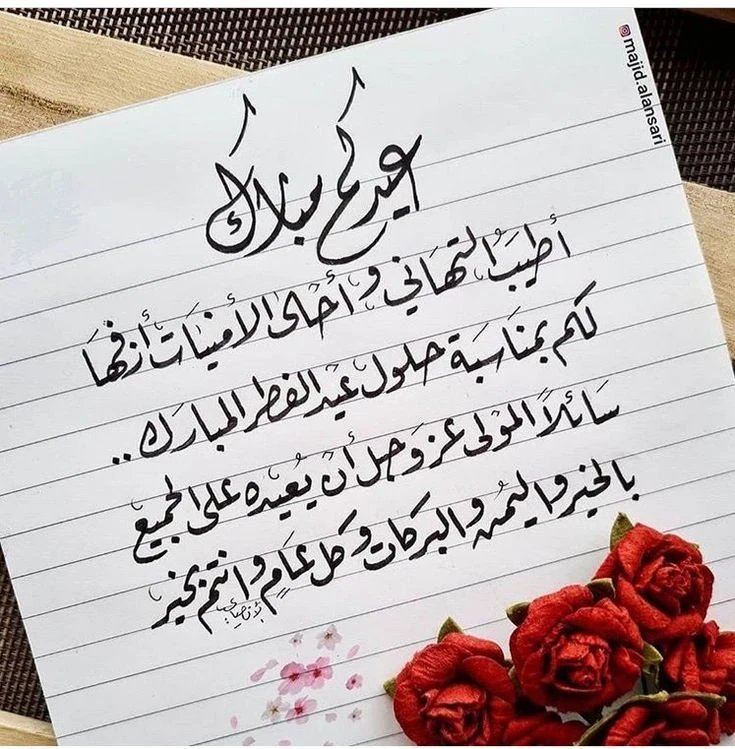 majid.alansari
عيدكم مبارك
أطيَبُ التهَاني وأحلى الأمنيَات أزفهَا
لكم بمنَاسبَة حلول عيد الفطر المبارَك ..
سَائلاً المولى عز وجل أن يُعيده على الجميع
بالخير واليمن والبركات وكل عَامٍ وانتم بخير
الأنصاري